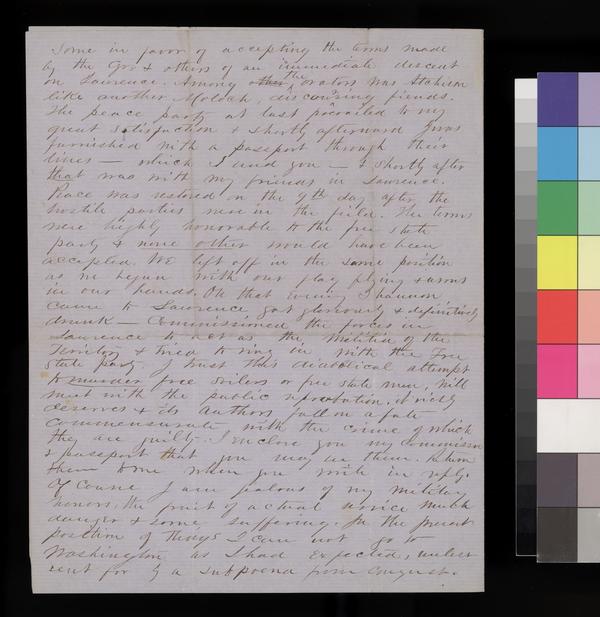 Some in favor of accepting the terms made
by the Gov & others of an immediate descent
on Lawrence. Among the orators was Atchison
like another Moloch, discouraging fiends.
The peace party at last prevailed to my
great satisfaction & shortly afterward I was
furnished with a passport through their
lines — which I send you — & shortly after
that was with my friends in Lawrence.
Peace was restored on the 9th day after the
hostile parties were in the field. The terms
were highly honorable to the free state
party & none other would have been
accepted. We left off in the same position
as we began with our flag flying & arms
in our hands. On that evening Shannon
came to Lawrence got gloriously & definitively
drunk — Commissioned the forces in
Lawrence to act as the Militia of the
Territory & tried to ring in, with the Free
state party. I trust this diabolical attempt
to murder free soilers or free state men, will
meet with the public reprobation it richly
deserves & its authors fall on a fate
commensurate with the crime of which
they are guilty. I enclose you my commission
& passport that you may see them. Return
them to me when you write in reply.
Of course I am jealous of my military
honors, the fruit of actual service much
danger & some suffering. In the present
position of things I can not go to
Washington as I had expected, unless
sent for by a subpoena from Congress.